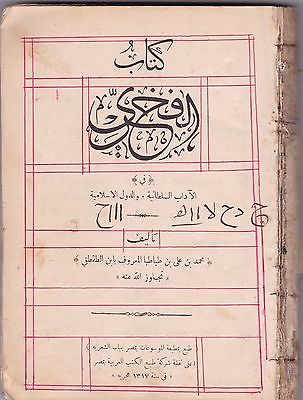 كتاب
الفخري
﴿ في ﴾
الآداب السلطانية - والدول الاسلامية
﴿ تأليف ﴾
﴿ محمد بن علي بن طباطبا المعروف بابن الطقطقي ﴾
﴿ تجاوز الله عنه ﴾
﴿ طبع بمطبعة الموسوعات بمصر بباب الشعريه ﴾
﴿ على نفقة شركة طبع الكتب العربية بمصر ﴾
﴿ في سنة ١٣١٧ هجريه ﴾